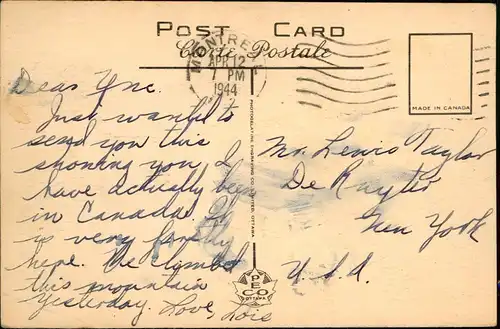 POST CARD
Carte Postale
MONTREAL
APR 12
7 PM
1944
MADE IN CANADA
Dear Unc.
Just want to
send you this
showing you I
have actually been
in Canada. It
is very
here. We climbed
this mountain
yesterday. Love, Lois
PHOTOGELATINE ENGRAVING CO. LIMITED, OTTAWA
PECO
OTTAWA
Mr. Lewis Taylor
De Ruyter
New York
U.S.A.